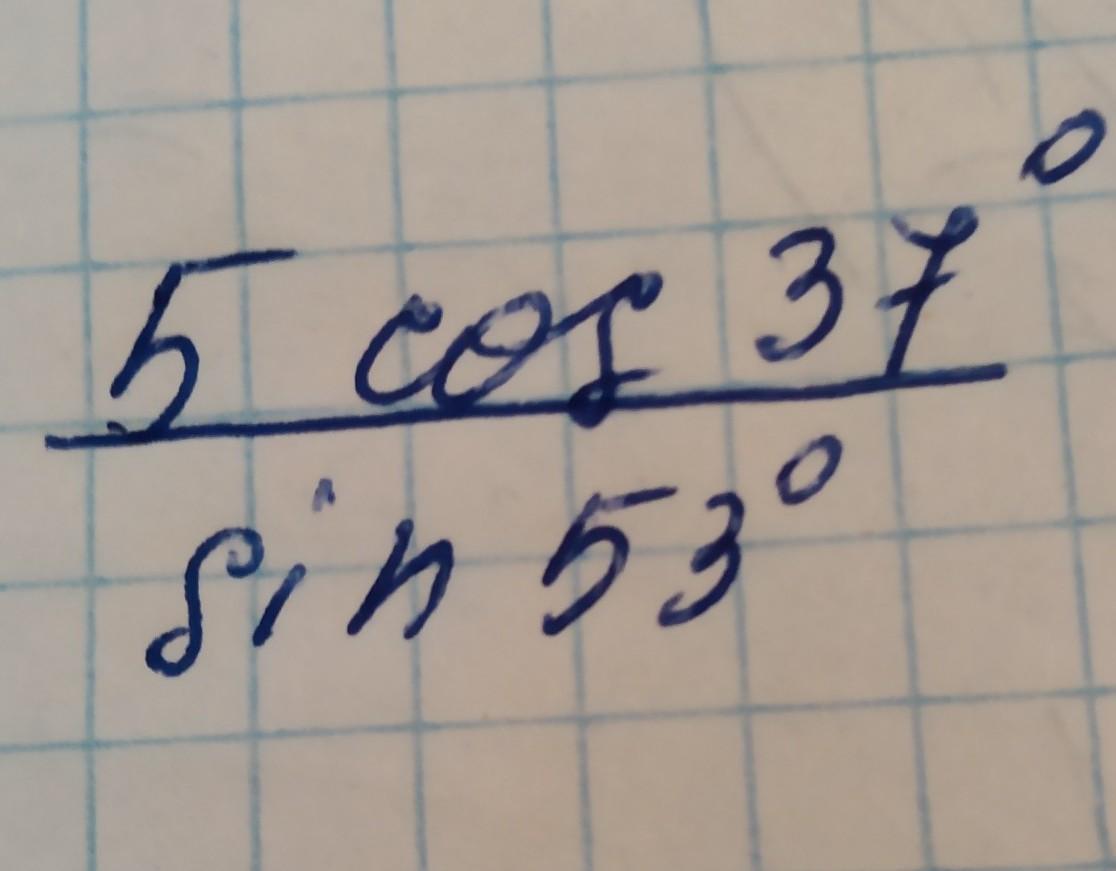 5 cos 37°
sin 53°